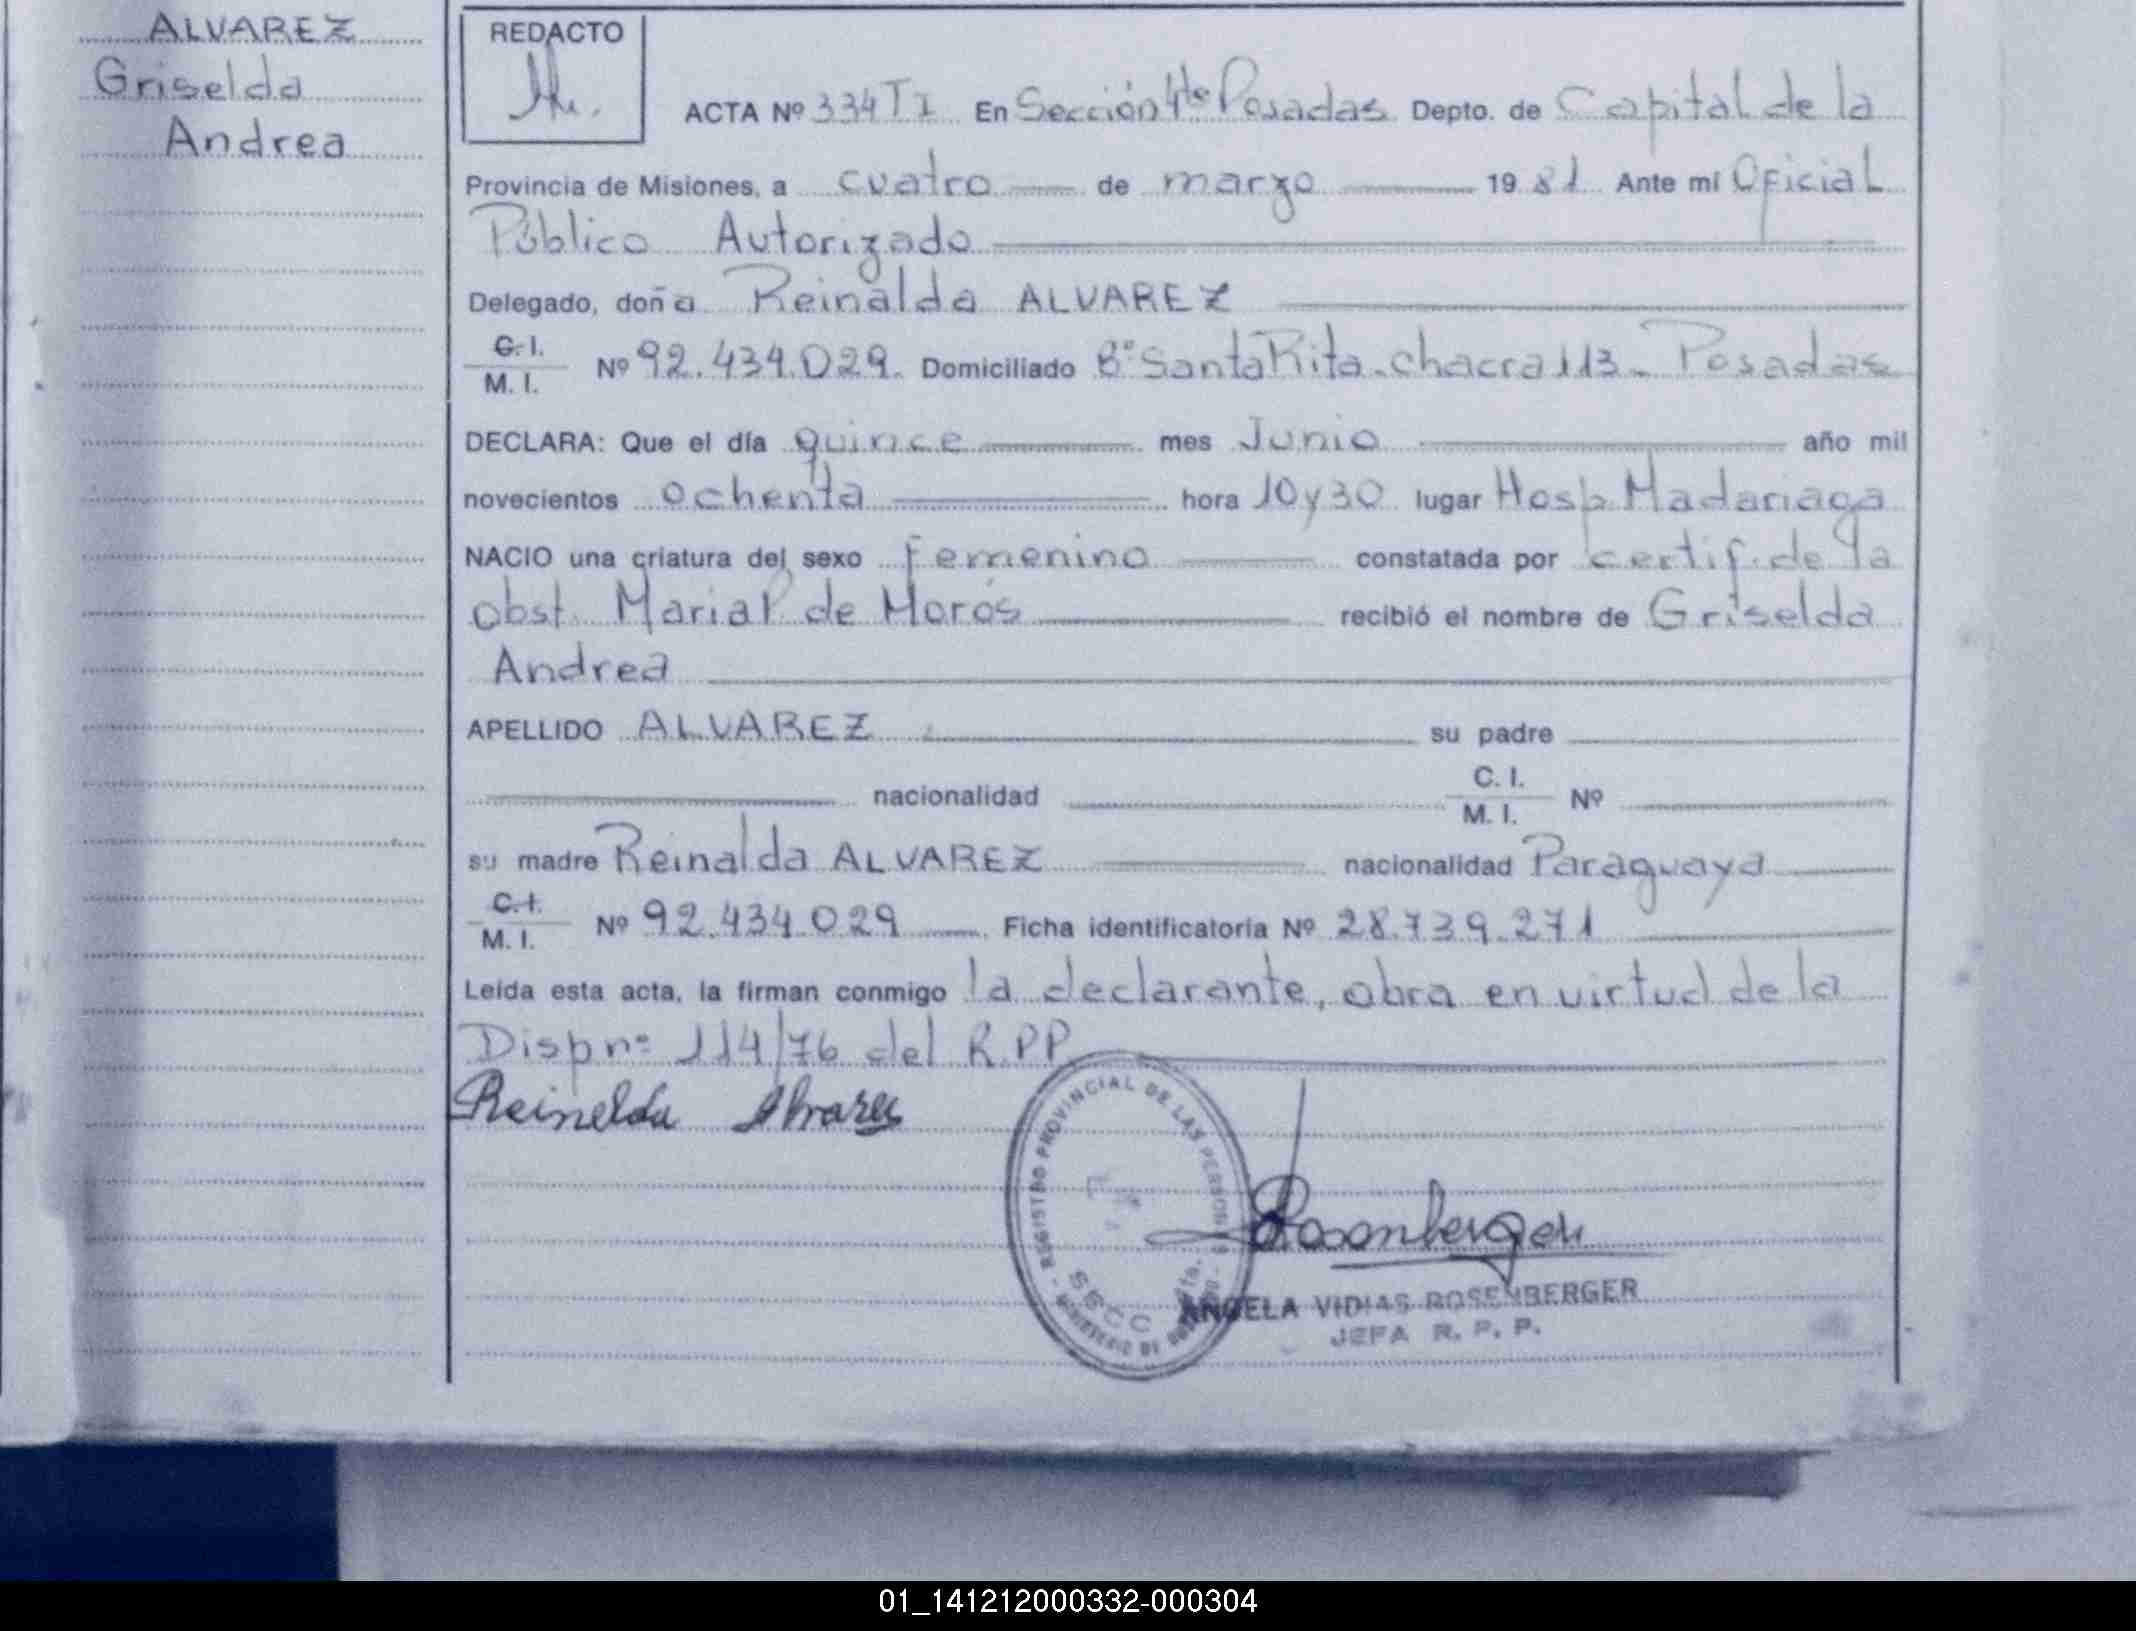 ALVAREZ
Griselda
Andrea
REDACTO
ACTA Nº 334 T I En Sección 4ta Posadas Depto. de Capital de la
Provincia de Misiones, a cuatro de marzo 1981 Ante mí Oficial
Público Autorizado
Delegado, doña Reinalda ALVAREZ
C. I.
M. I. Nº 92.434.029. Domiciliado Bº Santa Rita - chacra 113 - Posadas
DECLARA: Que el día quince mes Junio año mil
novecientos ochenta hora 10 y 30 lugar Hosp. Madariaga
NACIO una criatura del sexo femenino constatada por certif. de la
obst. Maria P. de Moros recibió el nombre de Griselda
Andrea
APELLIDO ALVAREZ su padre
nacionalidad C. I.
M. I. Nº
su madre Reinalda ALVAREZ nacionalidad Paraguaya
C. I.
M. I. Nº 92.434.029 Ficha identificatoria Nº 28.739.271
Leída esta acta, la firman conmigo la declarante, obra en virtud de la
Disp nº 114/76 del R.P.P.
Reinelda Alvarez
REGISTRO PROVINCIAL DE LAS PERSONAS
SECC. 4ta.
Rosenberger
ANGELA VIDIAS ROSENBERGER
JEFA R. P. P.
01_141212000332-000304